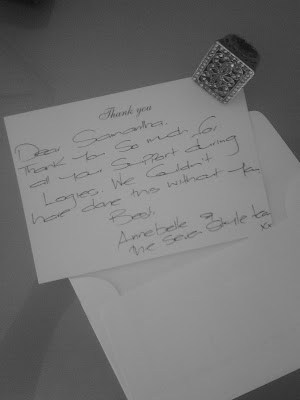 Thank you
Dear Samantha.
Thank you so much for
all your support during
Logies. We couldn't
have done this without you
Best,
Annabelle & Style team
The Seven
xx